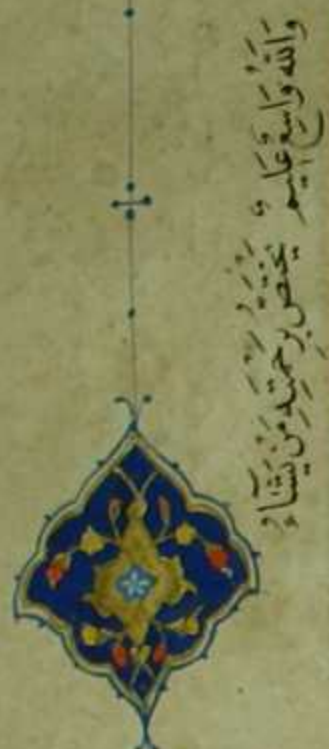 وَاللَّهُ وَاسِعٌ عَلِيمٌ يَخْتَصُّ بِرَحْمَتِهِ مَنْ يَشَاءُ